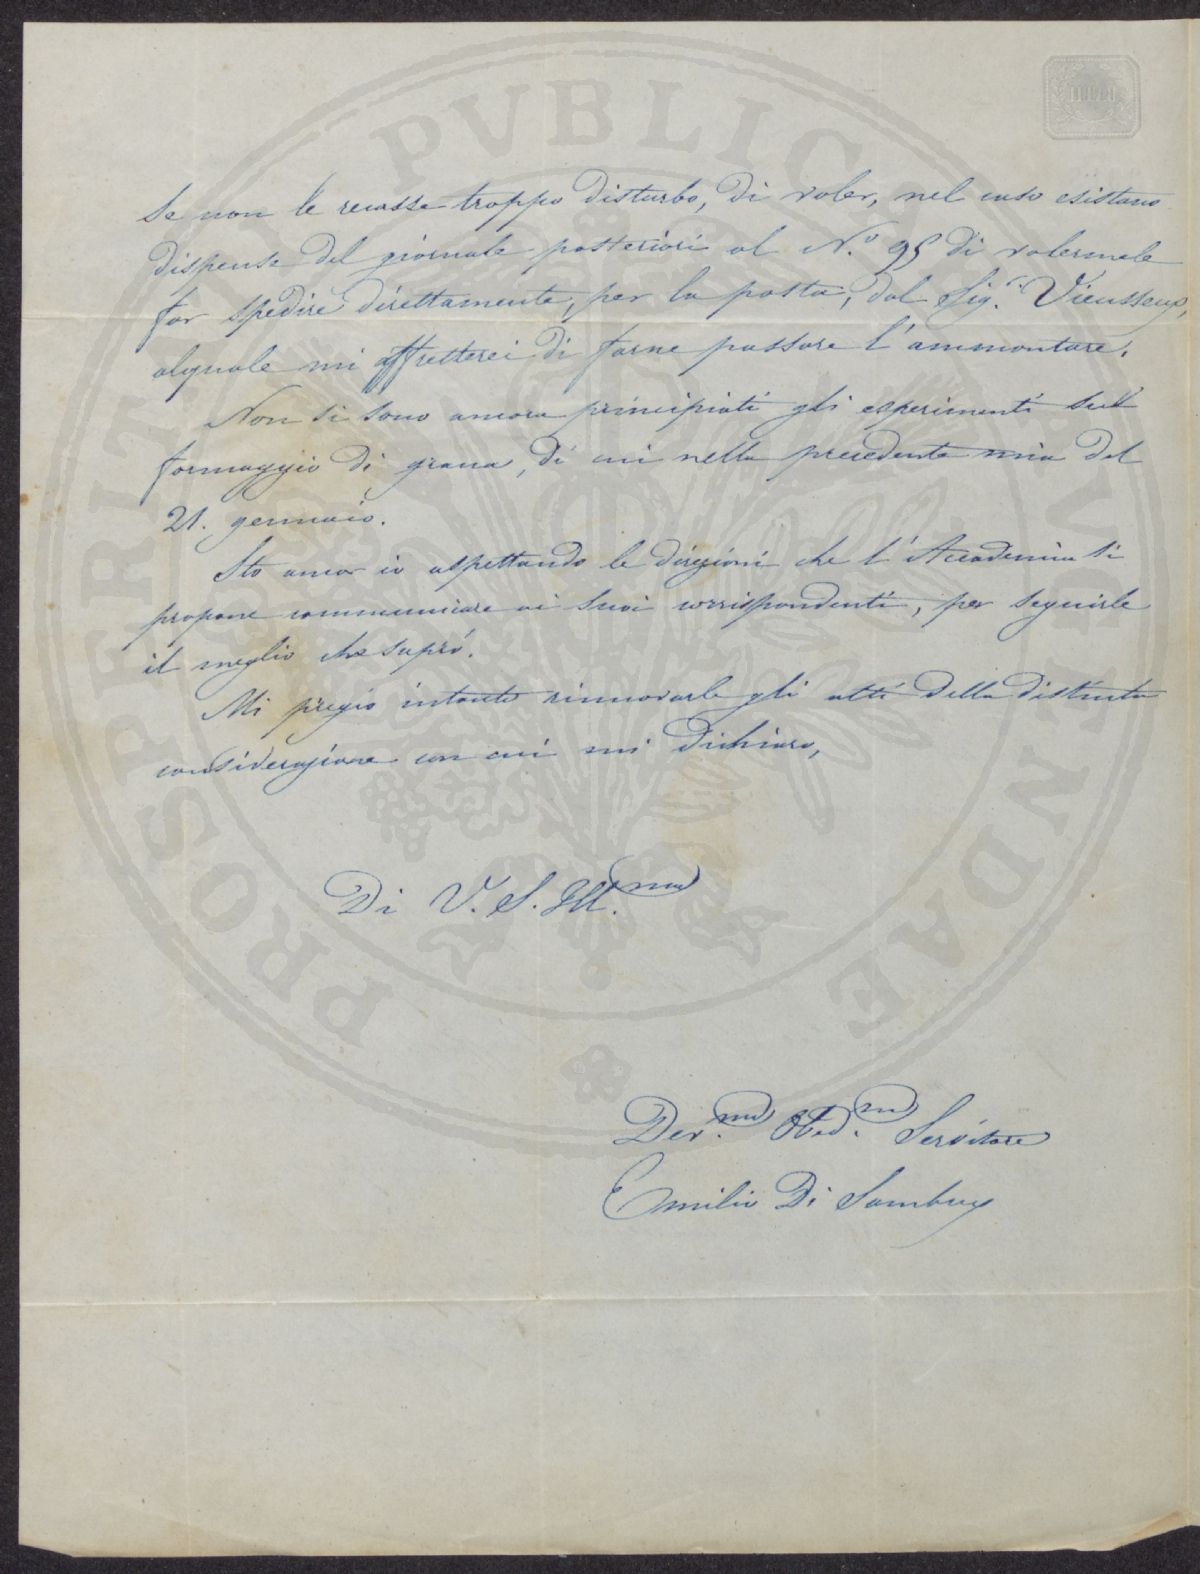 Se non le recasse troppo disturbo, di voler, nel caso esistano
dispense del giornale posteriori al N.º 95 di volermele
far spedire direttamente, per la posta, dal Sig.r Vieusseux,
alquale mi affretterei di farne passare l'ammontare.
Non si sono ancora principiati gli esperimenti sul
formaggio di grana, di cui nella precedente mia del
21. gennaio.
Sto ancor io aspettando le direzioni che l'Accademia si
propone communicare ai suoi corrispondenti, per seguirle
il meglio che saprò.
Mi pregio intanto rinnovarle gli atti della distinta
considerazione con cui mi dichiaro,
Di V. S. Ill.ma
Dev.mo Obed.mo Servitore
Emilio Di Sambuy
PROSPERITATI PVBLICAE AVGENDAE